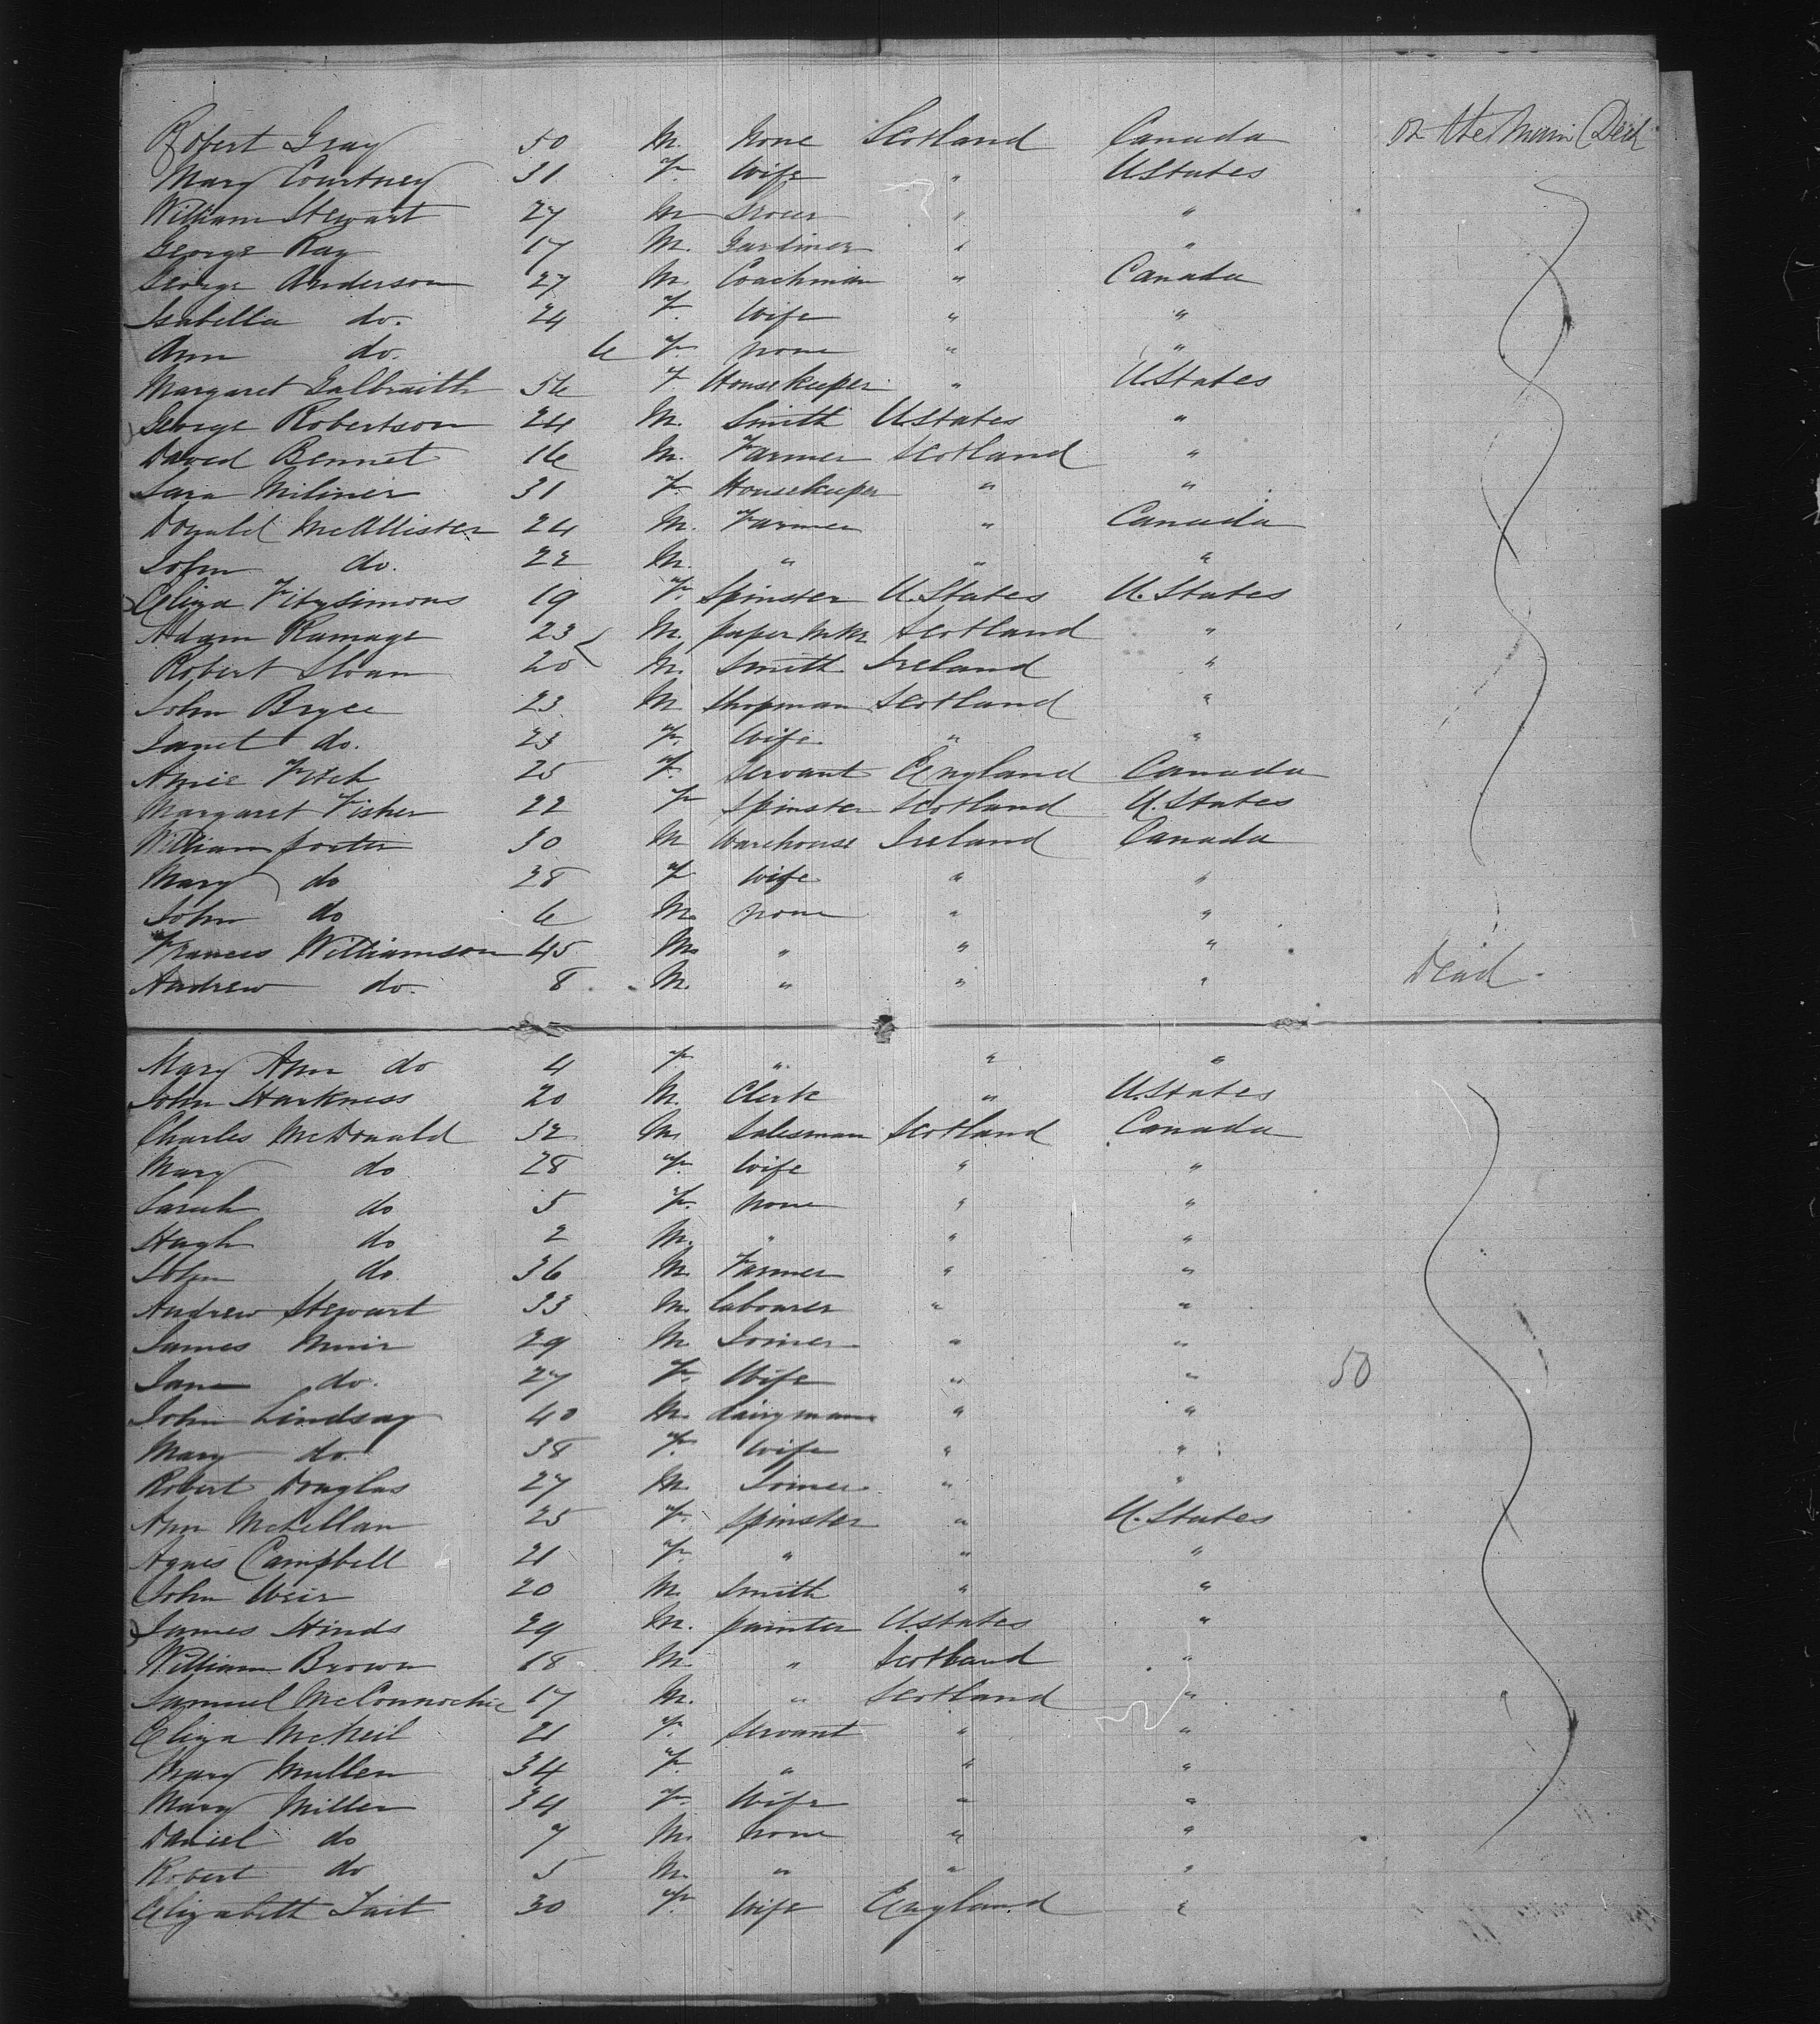 Robert Gray 50 M. None Scotland Canada on the Main Deck
Mary Courtney 31 F. Wife " UStates
William Stewart 27 M Grocer " "
George Ray 17 M. Gardiner " "
George Anderson 27 M. Coachman " Canada
Isabella do. 24 F. Wife " "
Ann do. 6 F. none " "
Margaret Galbraith 56 F. Housekeeper " U.States
George Robertson 24 M. Smith UStates "
David Bennet 16 M. Farmer Scotland "
Sara Miliner 31 F. Housekeeper " "
Donald McAllister 24 M. Farmer " Canada
John do. 22 M. " " "
Eliza Fitzsimons 19 F. Spinster U.States U.States
Adam Ramage 23 M. paper mkr Scotland "
Robert Sloan 20 M. Smith Ireland "
John Bryce 23 M Shopman Scotland "
Janet do. 23 F. Wife " "
Amie Fitch 25 F. Servant England Canada
Margaret Fisher 22 F Spinster Scotland U.States
William porter 30 M Warehouse Ireland Canada
Mary do 28 F Wife " "
John do 6 M. none " "
Frances Williamson 45 M. " " "
Andrew do. 8 M. " " " Dead
Mary Ann do 4 F. " " "
John Harkness 20 M. Clerk " UStates
Charles McDonald 32 M. Salesman Scotland Canada
Mary do 28 F. Wife " "
Sarah do 5 F. none " "
Hugh do 2 M. " " "
John do. 36 M. Farmer " "
Andrew Stewart 33 M. labourer " "
James Muir 29 M. Joiner " "
Jane do. 27 F. Wife " " 50
John Lindsay 40 M. dairyman " "
Mary do. 38 F. Wife " "
Robert Douglas 27 M. Joiner " "
Ann McLellan 25 F. Spinster " U.States
Agnes Campbell 21 F. " " "
John Weir 20 M. Smith " "
James Hinds 29 M. painter UStates "
William Brown 18 M. " Scotland "
Samuel McConnochie 17 M. " Scotland "
Eliza McNeil 21 F. Servant " "
Mary Mullen 34 F. " " "
Mary Miller 34 F. Wife " "
Daniel do 7 M. none " "
Robert do 5 M. " " "
Elizabeth Tait 30 F. Wife England "